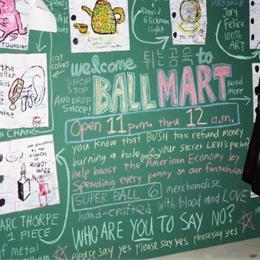 David
Gickman
Light
Jory
Felice
100%
ART
welcome 튀는공육 to
SHOP
STOP
AND
DROP
SHOOP!
BALLMART
Read
more
Open 11 p.m. thru 12 a.m.
you know that BUSH tax refund money
burning a hole in your secret LEVI's pocket
help boost the American Economy by
Spending every penny on our fantabulous
SUPER BALL 6 merchandise
hand-crafted with blood and LOVE
CHANG
MARC THORPE
1 PIECE
of metal
WHO ARE YOU TO SAY NO?
please say yes please say yes please say yes